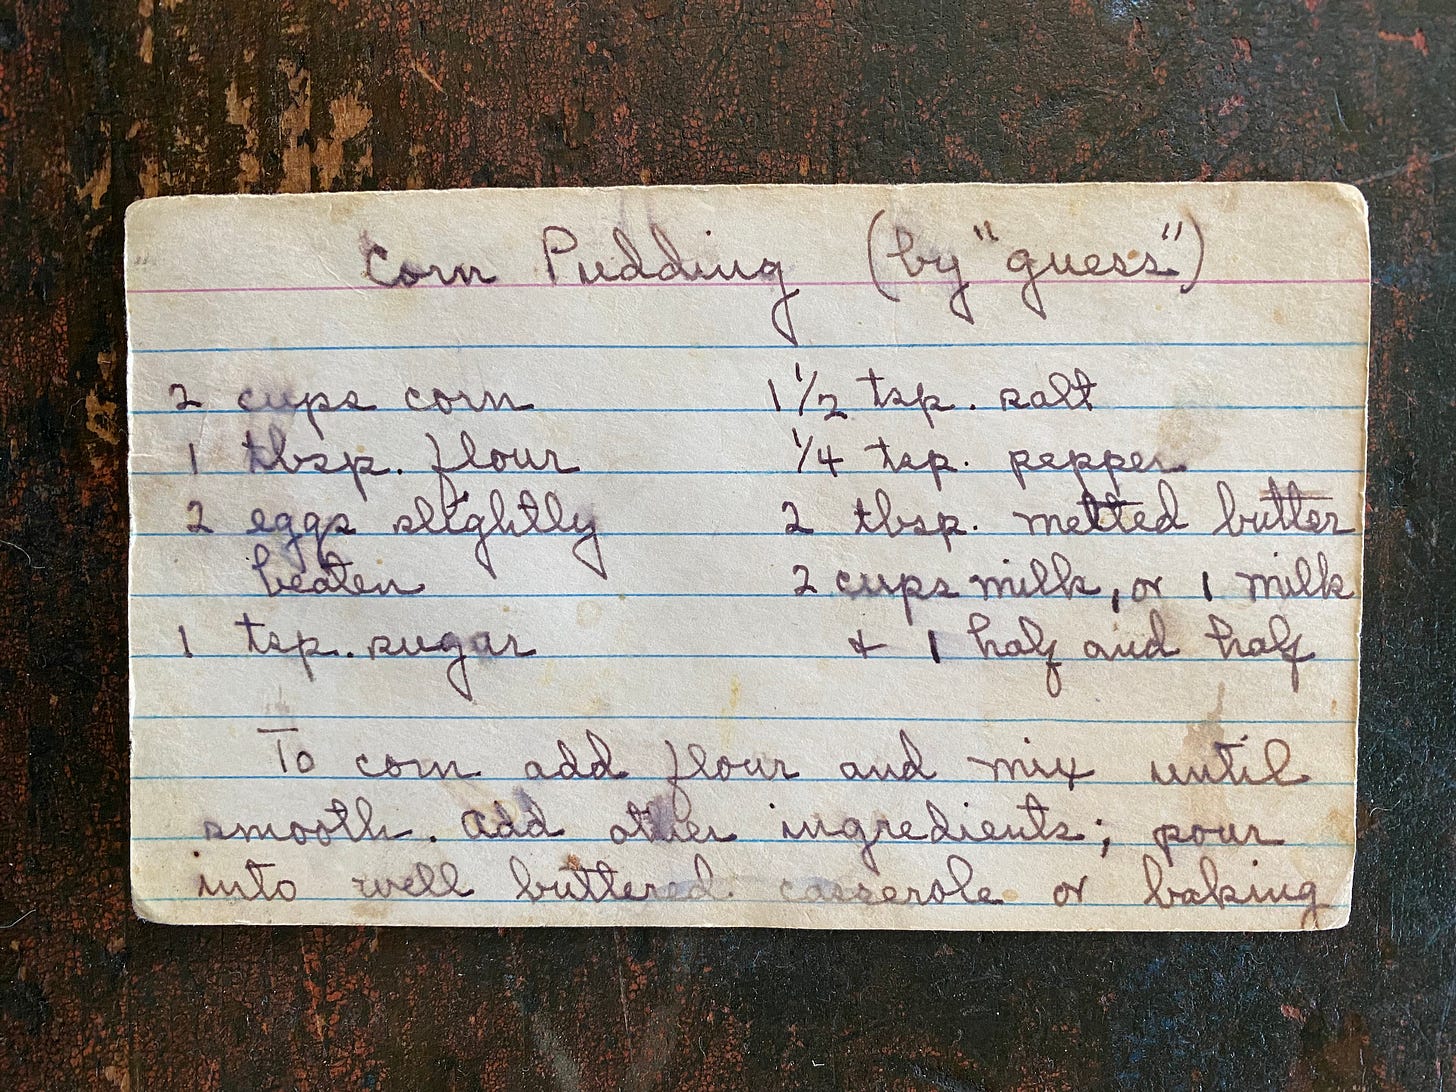 Corn Pudding (by "guess")
2 cups corn
1 tbsp. flour
2 eggs slightly
beaten
1 tsp. sugar
1 1/2 tsp. salt
1/4 tsp. pepper
2 tbsp. melted butter
2 cups milk, or 1 milk
+ 1 half and half
To corn add flour and mix until
smooth. Add other ingredients; pour
into well buttered casserole or baking